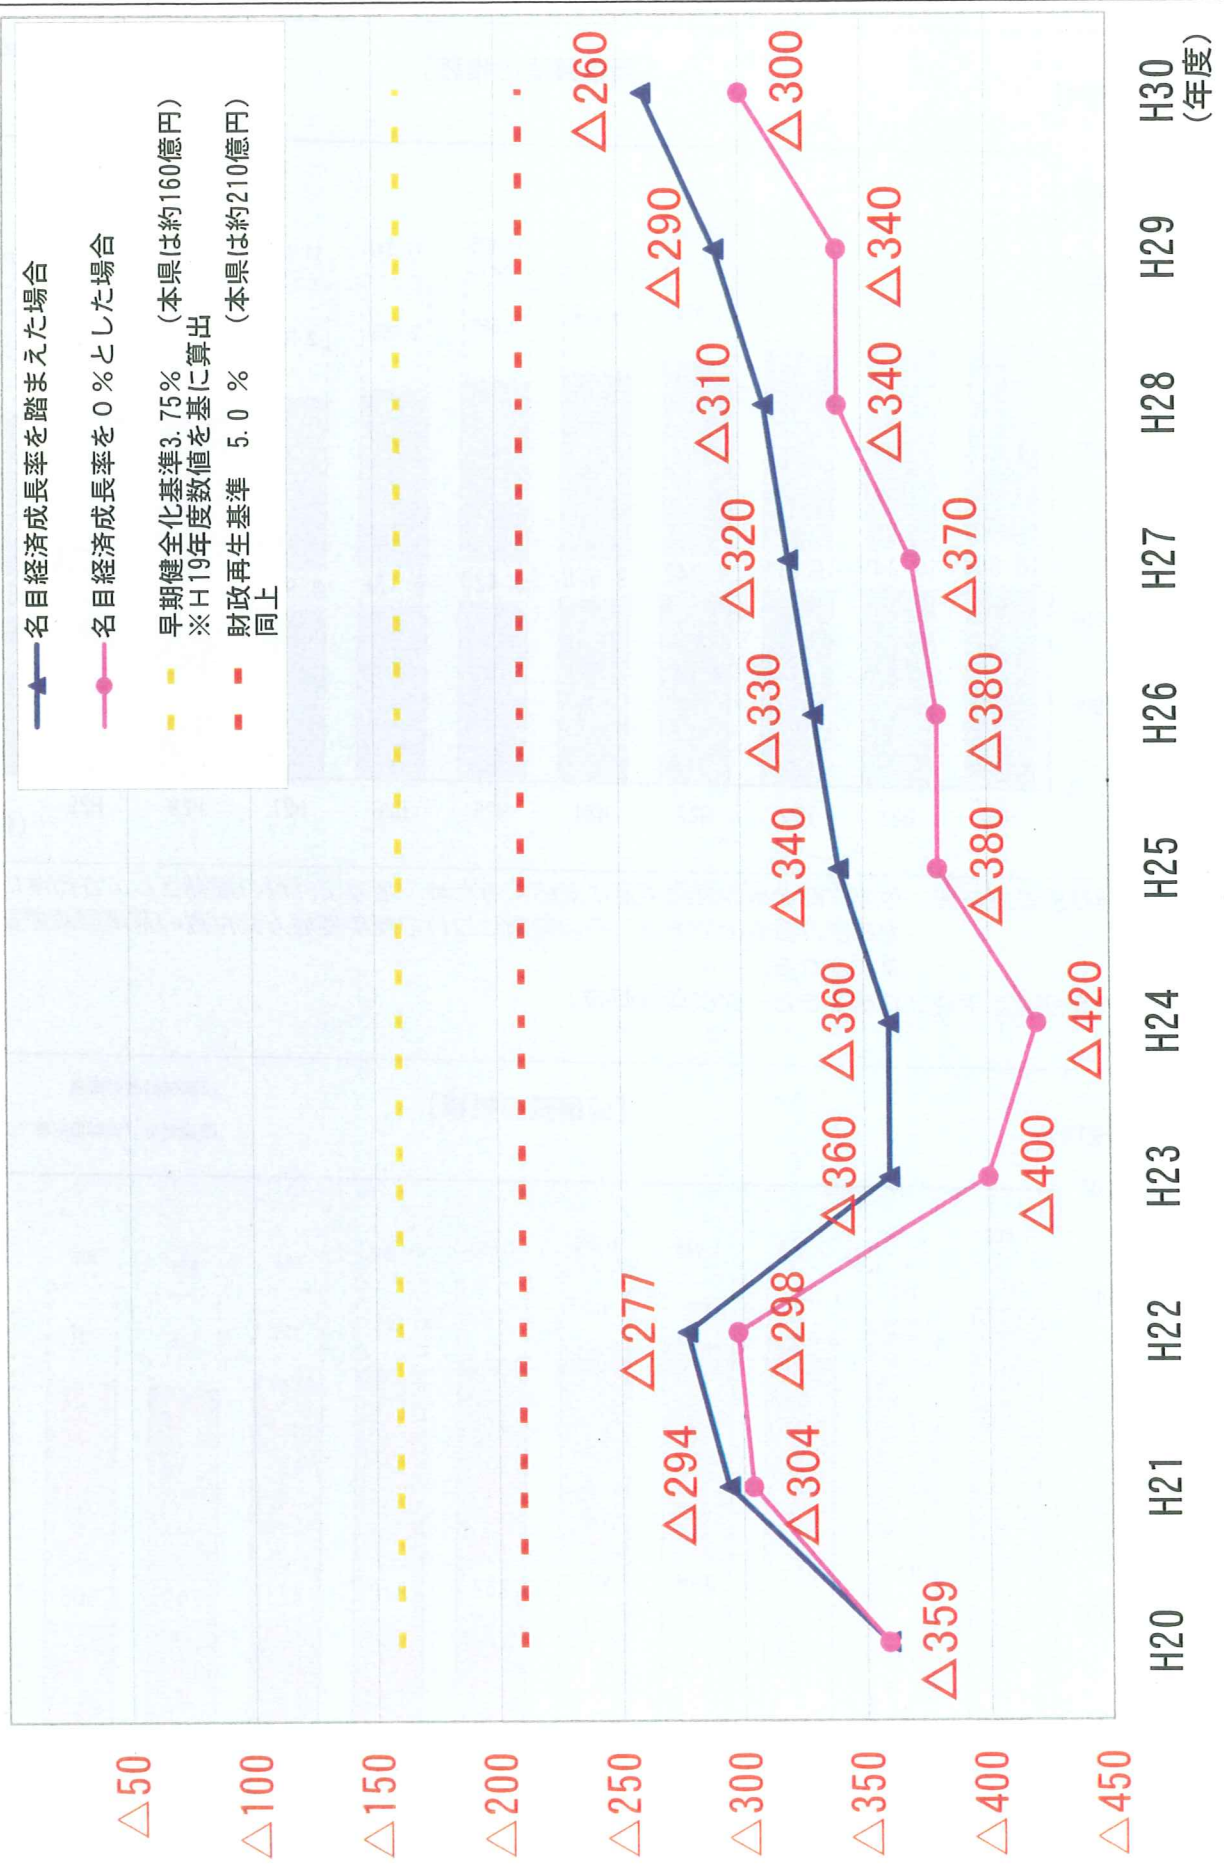 名目経済成長率を踏まえた場合
名目経済成長率を０％とした場合
早期健全化基準3.75％ （本県は約160億円）
※Ｈ19年度数値を基に算出
財政再生基準 5.0 ％ （本県は約210億円）
同上
△50
△100
△150
△200
△250
△300
△350
△400
△450
△359
△294
△277
△360
△360
△340
△330
△320
△310
△290
△260
△304
△298
△400
△420
△380
△380
△370
△340
△340
△300
H20
H21
H22
H23
H24
H25
H26
H27
H28
H29
H30
（年度）